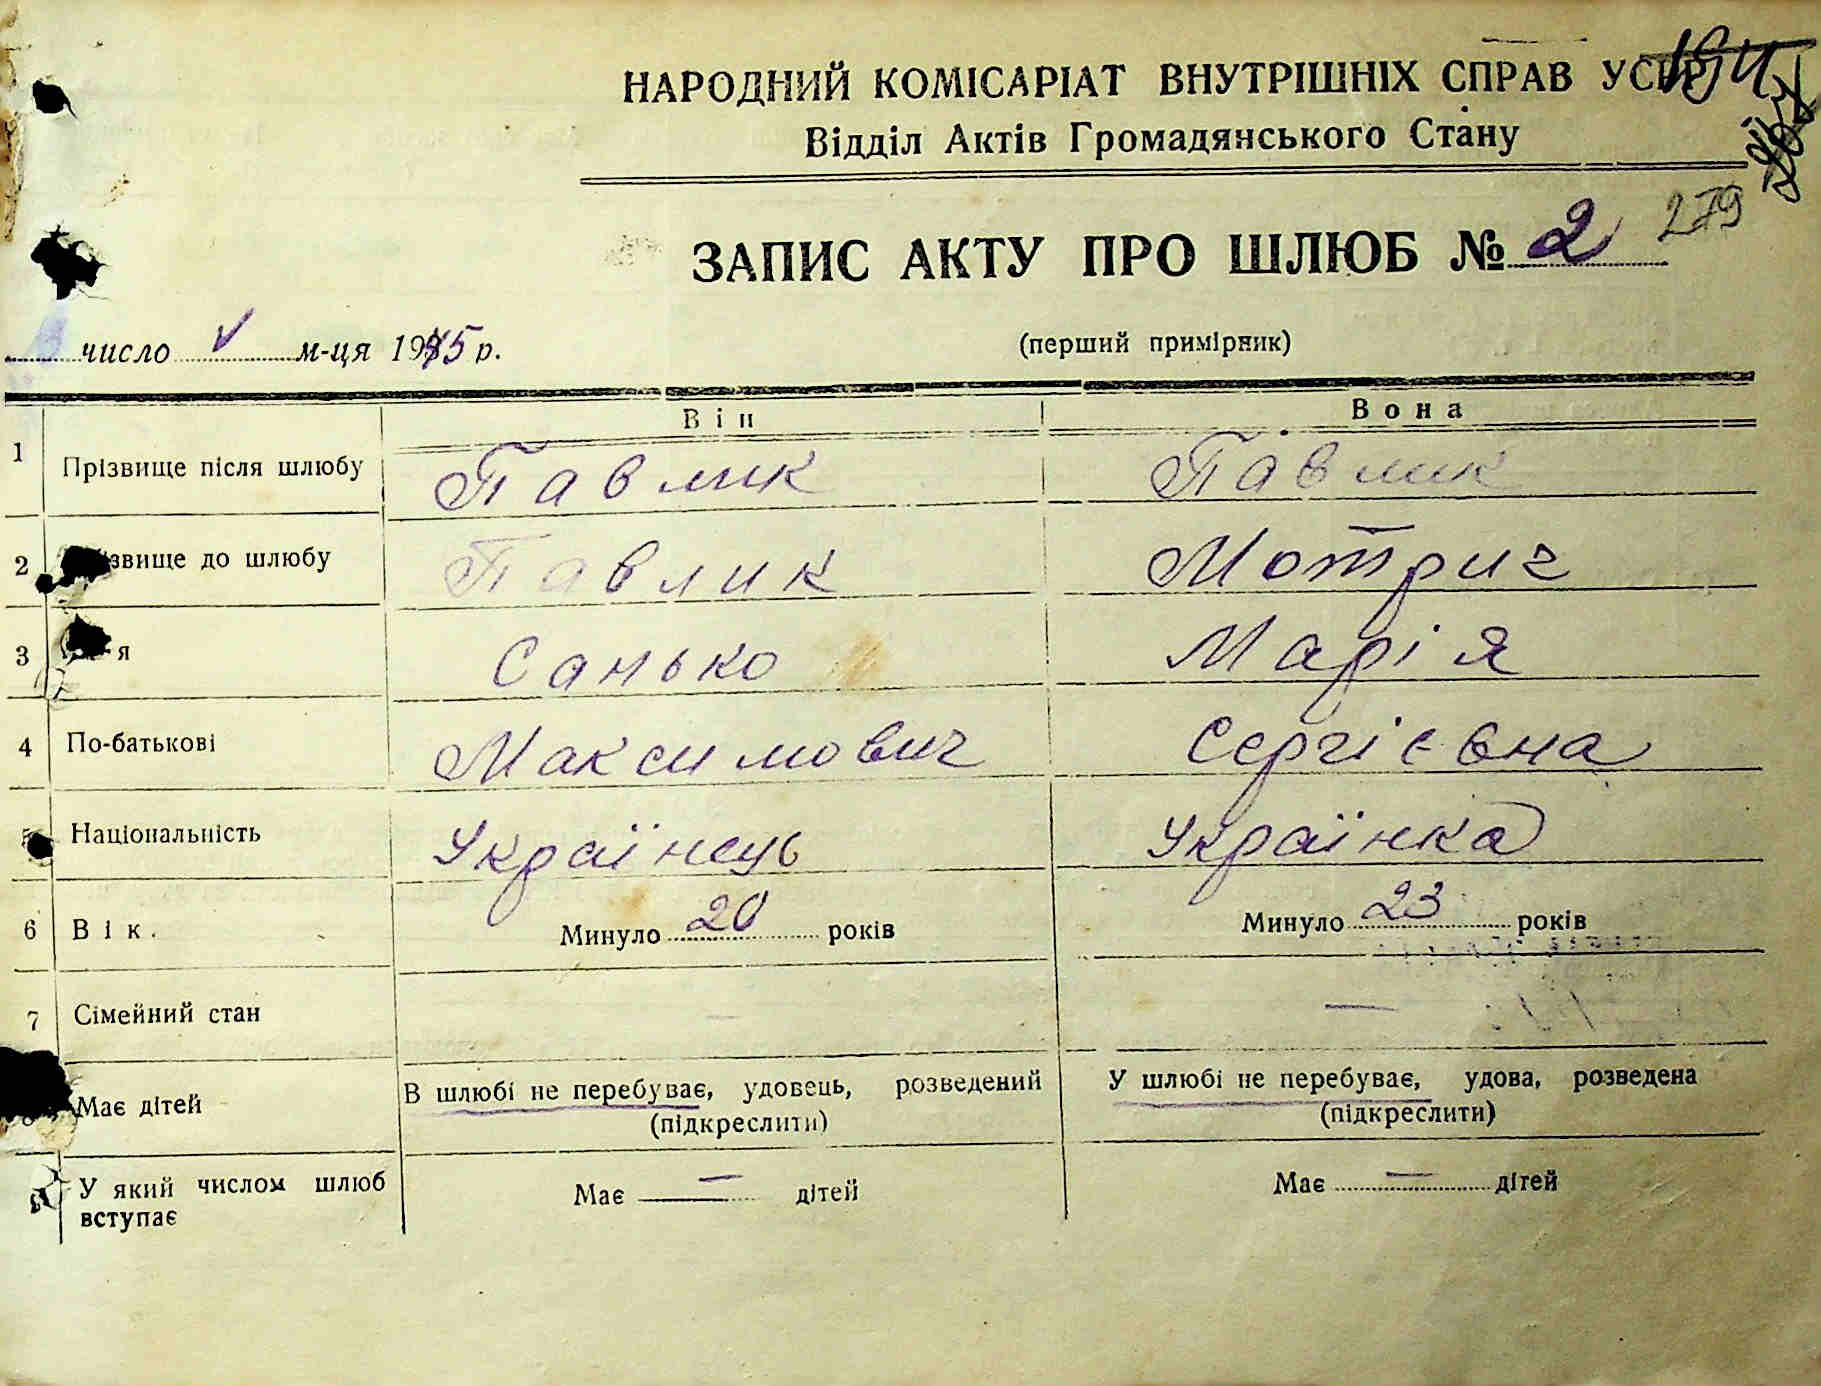 НАРОДНИЙ КОМІСАРІАТ ВНУТРІШНІХ СПРАВ УСРР
Відділ Актів Громадянського Стану
279
ЗАПИС АКТУ ПРО ШЛЮБ № 2
(перший примірник)
число V м-ця 1945 р.
Він Вона
1 Прізвище після шлюбу Павлик Павлик
2 звище до шлюбу Павлик Мотрич
3 я Санько Марія
4 По-батькові Максимович Сергієвна
5 Національність Українець Українка
6 Вік. Минуло 20 років Минуло 23 років
7 Сімейний стан — —
В шлюбі не перебуває, удовець, розведений У шлюбі не перебуває, удова, розведена
8 Має дітей (підкреслити) (підкреслити)
У який числом шлюб Має — дітей Має — дітей
вступає